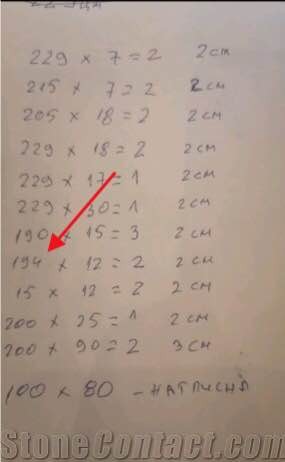 229 × 7 = 2 2 см
215 × 7 = 2 2 см
205 × 18 = 2 2 см
229 × 18 = 2 2 см
229 × 17 = 1 2 см
229 × 30 = 1 2 см
190 × 15 = 3 2 см
194 × 12 = 2 2 см
15 × 12 = 2 2 см
200 × 25 = 1 2 см
200 × 90 = 2 3 см
100 × 80 -
StoneContact.com